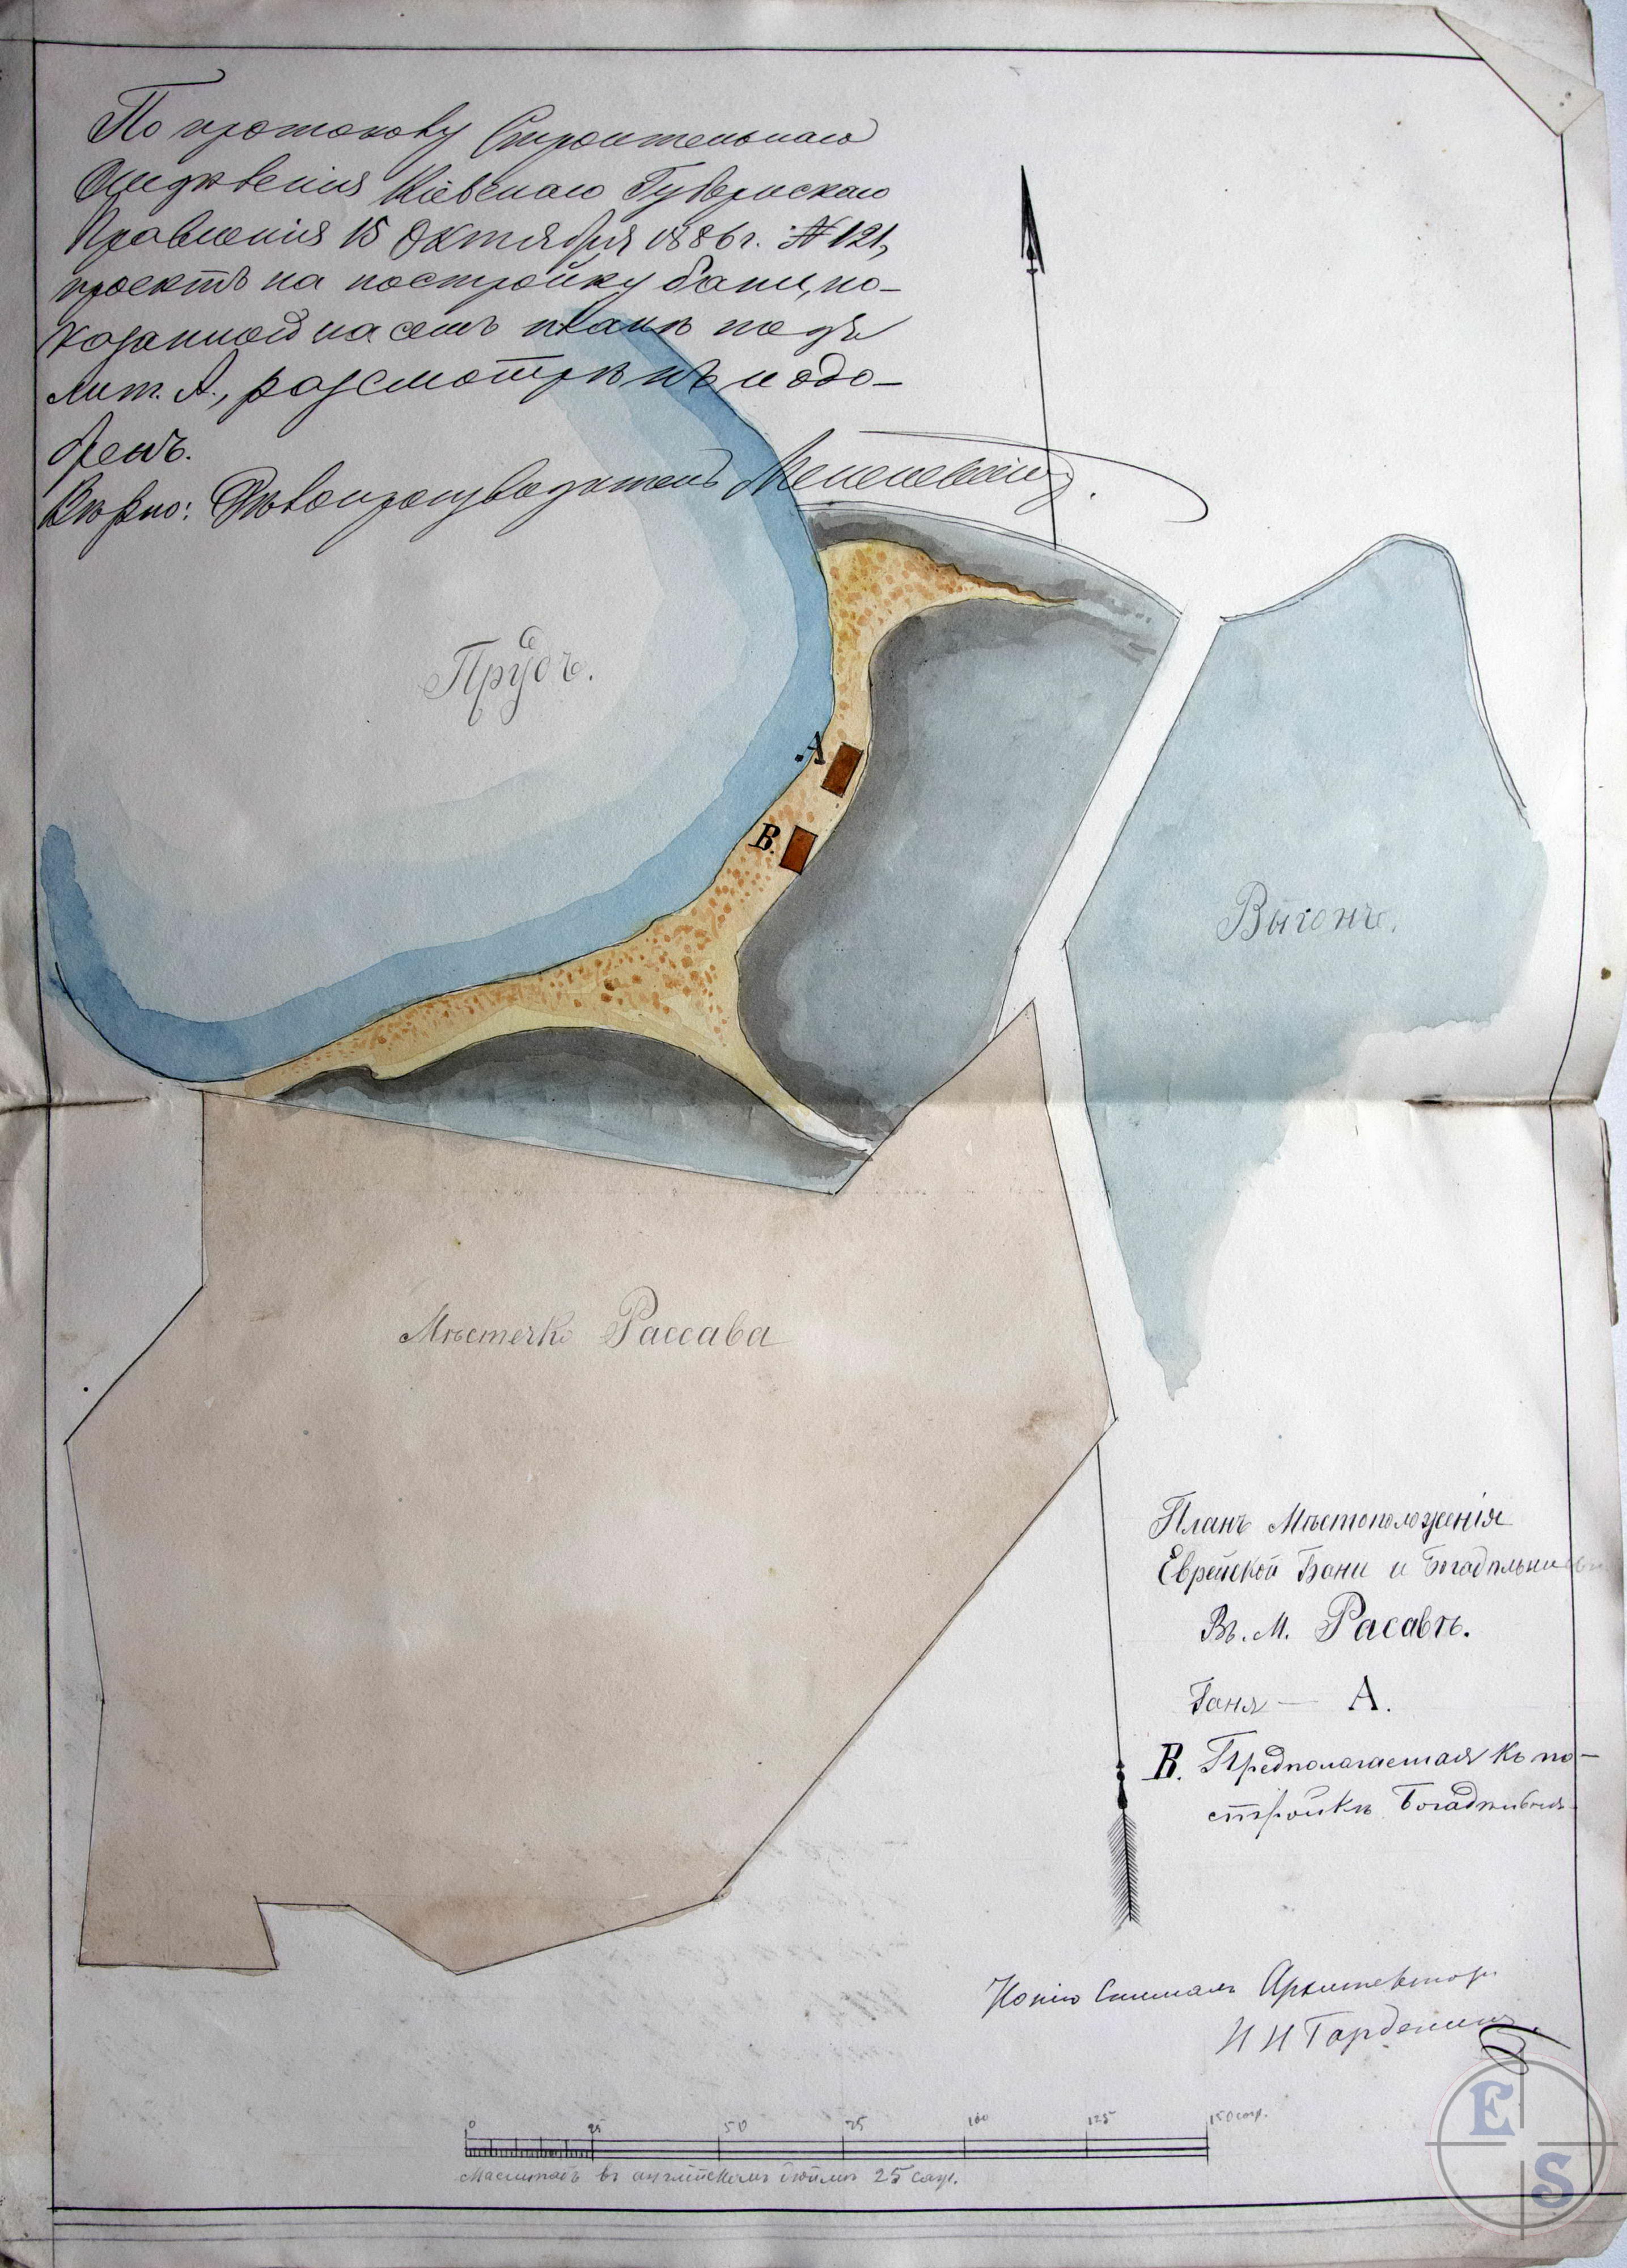 По протоколу Строительнаго
Отдѣленія Кіевскаго Губернскаго
Правленія 15 Октября 1886 г. № 121,
проектъ на постройку бани, по-
казанной на семъ планѣ подъ
лит. А., разсмотрѣнъ и одо-
бренъ.
Вѣрно: Дѣлопроизводитель
Прудъ.
А
В.
Выгонъ.
Мѣстечко Рассава
Планъ Мѣстоположенія
Еврейской Бани и Богадѣльни
Въ. М. Расавѣ.
Баня — А.
В. Предполагаемая къ по-
стройкѣ Богадѣльня
Копію Снималъ Архитекторъ
И И Горденинъ.
0 25 50 75 100 125 150 саж.
Масштабъ въ англійскомъ дюймѣ 25 саж.
E
S